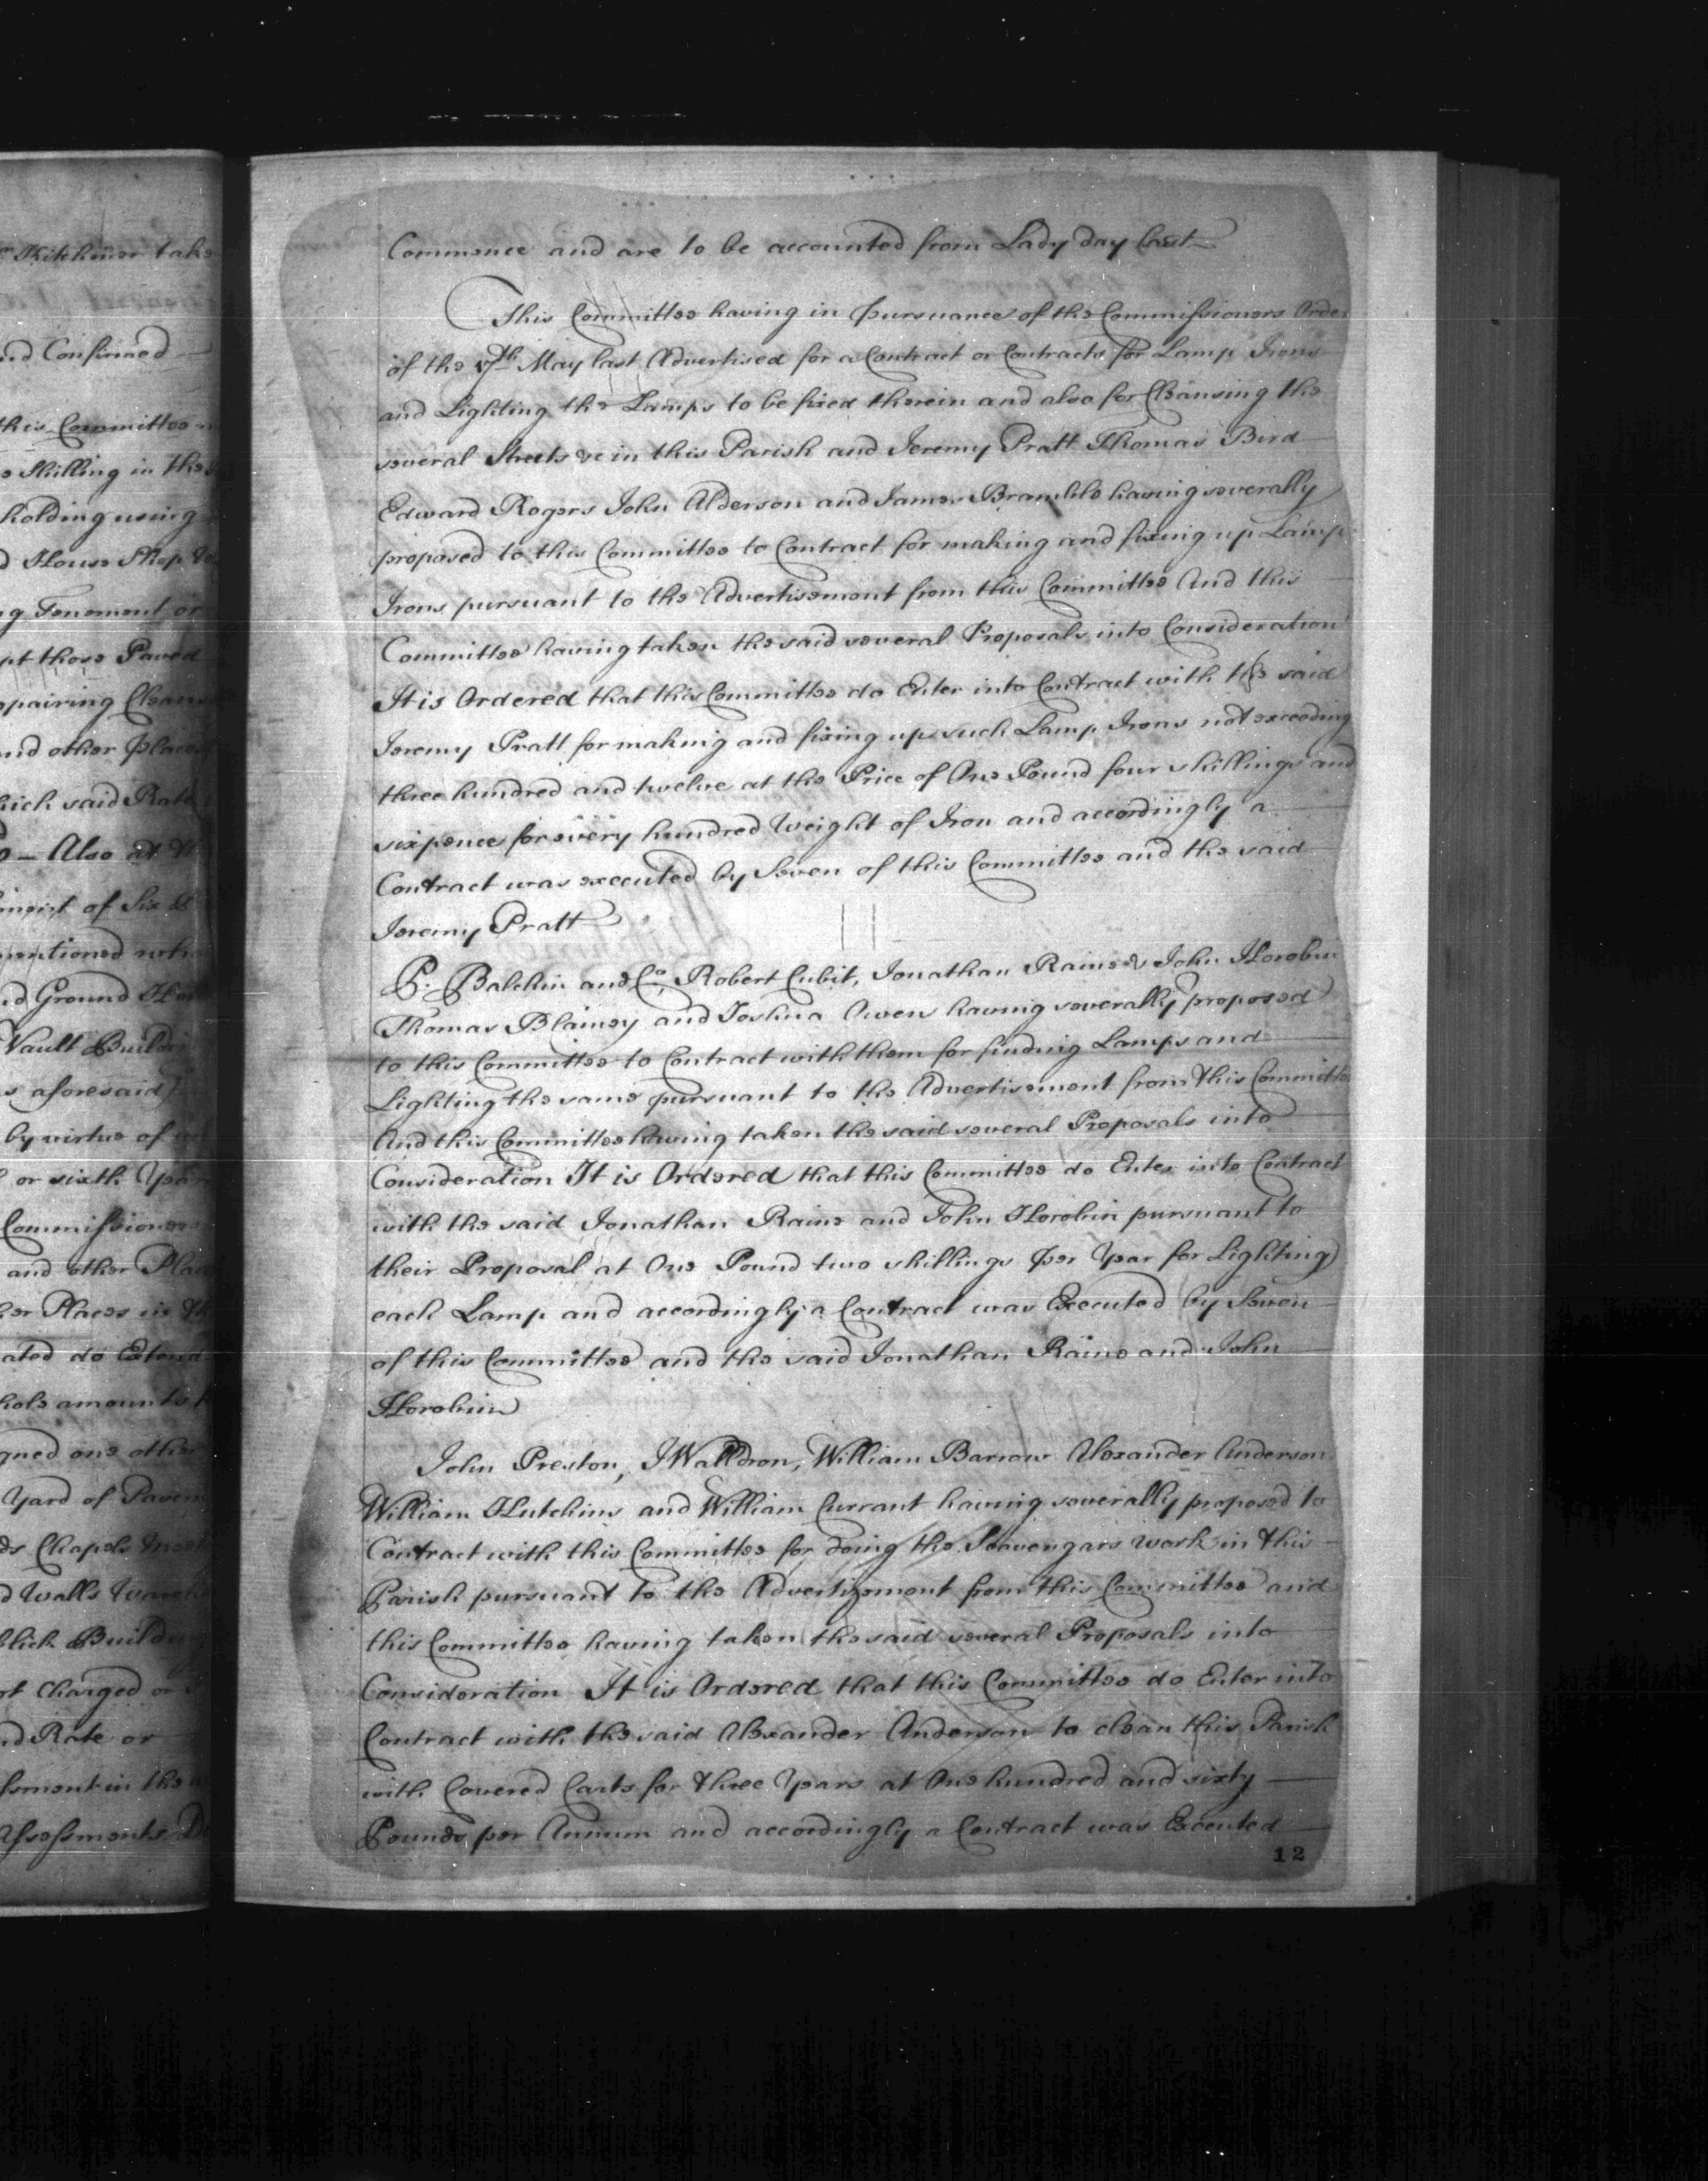 Kitchiner take
and Confirmed
this Committee
Shilling in the
holding using
House Shop
Tenement or
those Paved
repairing Cleans
and other Places
which said Rate
Also at
of Six
mentioned
Ground
Vault Buildi
aforesaid
by virtue of
or sixth Year
Commissioners
and other Plac
Places in th
do Extend
whole amounts
one other
Yard of Pavem
Chapels
Walls
Buildin
Charged or
Rate or
in the
Assessments
Commence and are to be accounted from Lady day last
This Committee having in pursuance of the Commissioners Order
of the 7th May last Advertised for a Contract or Contracts for Lamp Irons
and Lighting the Lamps to be fixed therein and also for Cleansing the
several Streets &c in this Parish and Jeremy Pratt Thomas Bird
Edward Rogers John Alderson and James Bramble having severally
proposed to this Committee to Contract for making and fixing up Lamp
Irons pursuant to the Advertisement from this Committee And this
Committee having taken the said several Proposals into Consideration
It is Ordered that this Committee do Enter into Contract with the said
Jeremy Pratt for making and fixing up such Lamp Irons not exceeding
three hundred and twelve at the Price of One Pound four shillings and
sixpence for every hundred Weight of Iron and accordingly a
Contract was executed by Seven of this Committee and the said
Jeremy Pratt
P. Balchin and Co, Robert Cubit, Jonathan Raine & John Horobin
Thomas Blainey and Joshua Owen having severally proposed
to this Committee to Contract with them for finding Lamps and
Lighting the same pursuant to the Advertisement from this Committee
And this Committee having taken the said several Proposals into
Consideration It is Ordered that this Committee do Enter into Contract
with the said Jonathan Raine and John Horobin pursuant to
their Proposal at One Pound two shillings per Year for Lighting
each Lamp and accordingly a Contract was Executed by Seven
of this Committee and the said Jonathan Raine and John
Horobin
John Preston, J Walldron, William Barrow Alexander Anderson
William Hutchins and William Currant having severally proposed to
Contract with this Committee for doing the Scavengars work in this
Parish pursuant to the Advertizement from this Committee and
this Committee having taken the said several Proposals into
Consideration It is Ordered that this Committee do Enter into
Contract with the said Alexander Anderson to clean this Parish
with Covered Carts for three Years at One hundred and sixty
Pounds per Annum and accordingly a Contract was Executed
12